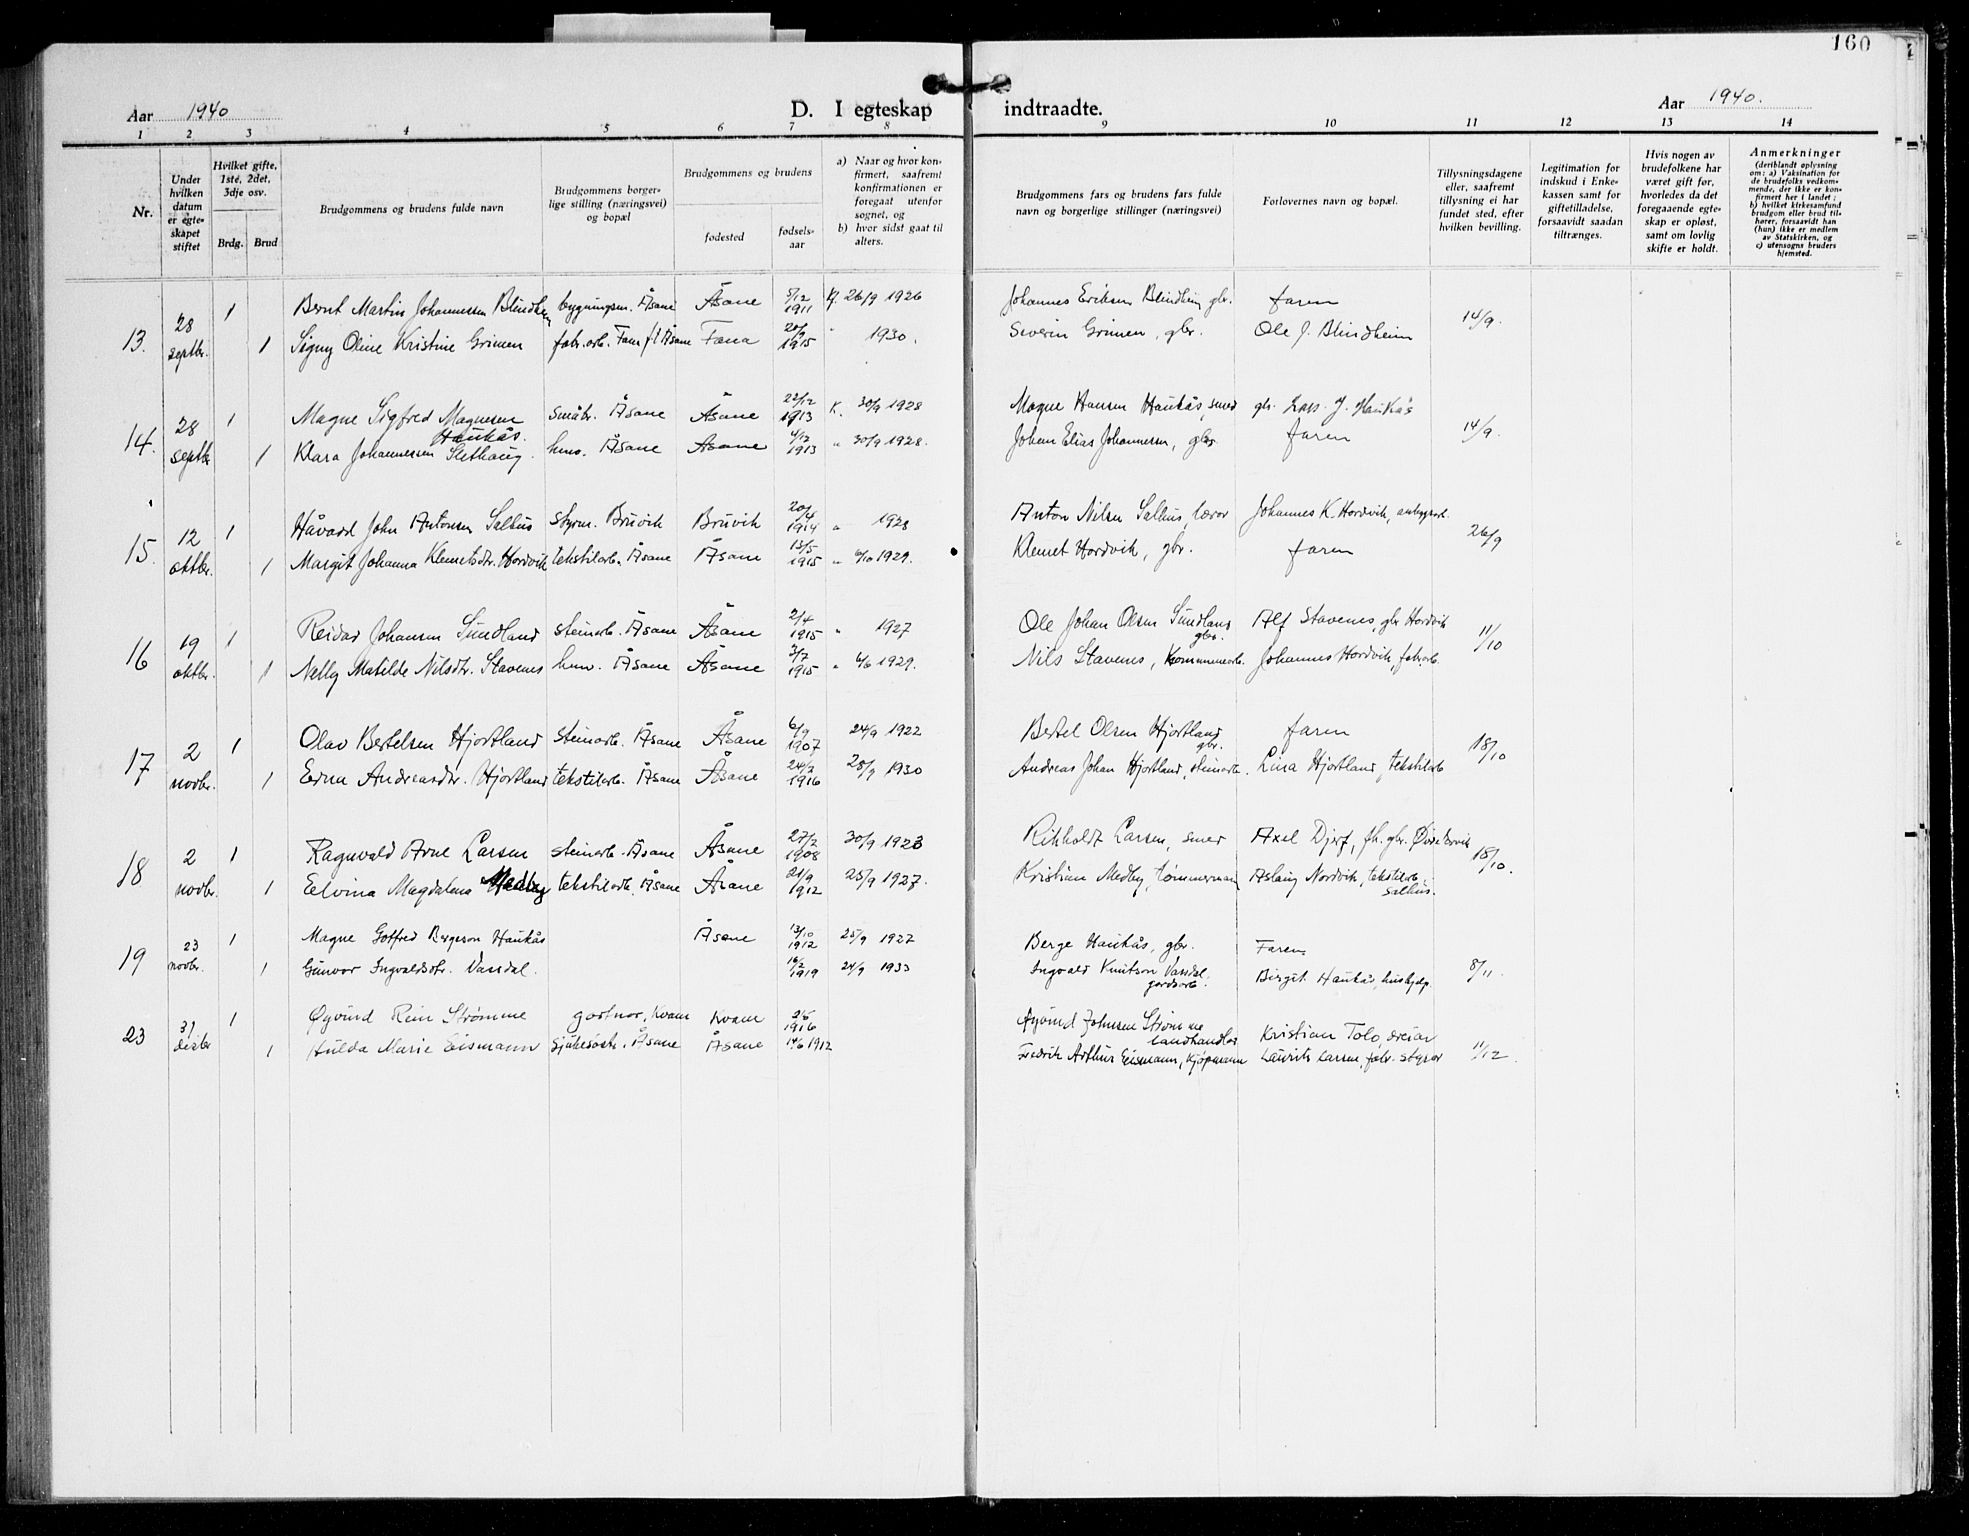 160
Aar 1940 D. I egteskap indtraadte. Aar 1940.
1 2 3 4 5 6 7 8 9 10 11 12 13 14
Nr.
Under hvilken datum er egteskapet stiftet
Hvilket gifte, 1ste, 2det, 3dje osv.
Brdg. Brud
Brudgommens og brudens fulde navn
Brudgommens borgerlige stilling (næringsvei) og bopæl
Brudgommens og brudens
fødested fødselsaar
a) Naar og hvor konfirmert, saafremt konfirmationen er foregaat utenfor sognet, og
b) hvor sidst gaat til alters.
Brudgommens fars og brudens fars fulde navn og borgerlige stillinger (næringsvei)
Forlovernes navn og bopæl.
Tillysningsdagene eller, saafremt tillysning ei har fundet sted, efter hvilken bevilling.
Legitimation for indskud i Enkekassen samt for giftetilladelse, forsaavidt saadan tiltrænges.
Hvis nogen av brudefolkene har været gift før, hvorledes da det foregaaende egteskap er opløst, samt om lovlig skifte er holdt.
Anmerkninger
(deriblandt oplysning om: a) Vaksination for de brudefolks vedkommende, der ikke er konfirmert her i landet; b) hvilket kirkesamfund brudgom eller brud tilhører, forsaavidt han (hun) ikke er medlem av Statskirken, og c) utensogns bruders hjemsted.
13. 28 septbr. 1 Bernt Martin Johannessen Blindheim bygningsm. Åsane Åsane 5/12 1911 K. 26/9 1926 Johannes Eriksen Blindheim gbr. faren 14/9.
1 Signy Oline Kristine Grimen fabr.arb. Fana Fana 1915 " 1930. Severin Grimen, gbr. Ole J. Blindheim
14. 28 septbr 1 Magne Sigfred Magnesen Haukås. småbr. Åsane Åsane 23/12 1913 K. 30/9 1928 Magne Hansen Haukås, smed gbr. Lars J. Haukås 14/9.
1 Klara Johannessen Slethaug. hus. Åsane Åsane 4/12 1913 " 30/9 1928. Johan Elias Johannessen, gbr. faren
15. 12 oktbr. 1 Håvard John Antonsen Salhus styrm. Bruvik Bruvik 20/4 1914 " 1928 Anton Nilsen Salhus, lærer Johannes K. Hordvik, 26/9
1 Margit Johanna Klemetsdtr. Hordvik tekstilarb. Åsane Åsane 13/5 1915 " 6/10 1929. Klemet Hordvik, gbr. faren
16 19 oktbr. 1 Reidar Johansen Sundland steinarb. Åsane Åsane 2/4 1915 " 1927 Ole Johan Olsen Sundland gbr. Alf Stavenes, gbr Hordvik 11/10
1 Nelly Matilde Nilsdtr. Stavenes hus. Åsane Åsane 3/7 1915 " 6/6 1929. Nils Stavenes, kommunearb. Johannes Hordvik, fabrarb.
17 2 novbr. 1 Olav Bertelsen Hjortland steinarb. Åsane Åsane 6/9 1907 24/9 1922 Bertel Olsen Hjortland gbr. faren 18/10
1 Erna Andreasdtr. Hjortland tekstilarb. Åsane Åsane 24/2 1916 28/9 1930 Andreas Johan Hjortland, steinarb. Lina Hjortland, tekstilarb
18 2 novbr. 1 Ragnvald Arne Larsen steinarb. Åsane Åsane 27/2 1908 30/9 1923 Rikholdt Larsen, smed Axel Djerf, fh. gbr. 18/10.
1 Edvina Magdalena Medby tekstilarb. Åsane Åsane 21/9 1912 25/9 1927. Kristian Medby, tømmermann Aslaug Nordvik, tekstilarb. Salhus.
19 23 novbr. 1 Magne Gotfred Bergeson Haukås Åsane 13/10 1912 25/9 1927 Berge Haukås, gbr. Faren 8/11.
1 Gunvor Ingvaldsdtr. Vassdal. 16/2 1919 24/9 1933 Ingvald Knutson Vassdal, gardsarb. Birgit Haukås, hushjelp
23 31 desbr 1 Øyvind Rein Strømme gartner, Kvam Kvam 1916 Øyvind Johnsen Strømme landhandler Kristian Tolo, dreiar 11/12.
1 Hulda Marie Eismann Sjukesøstr. Åsane Åsane 14/6 1912 Fredrik Arthur Eismann, kjøpmann Laurits Larsen, fabr. styrar